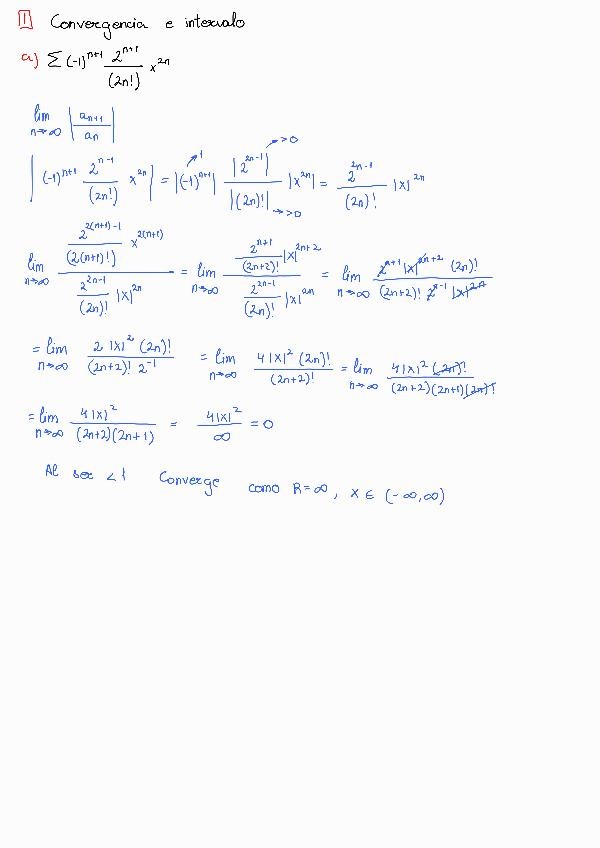 1 Convergencia e intervalo
a) Σ (-1)^{n+1} \frac{2^{n+1}}{(2n!)} x^{2n}
lim_{n→∞} |\frac{a_{n+1}}{a_n}|
|(-1)^{n+1} \frac{2^{n-1}}{(2n!)} x^{2n}| = |(-1)^{n+1}|^{↗1} \frac{|2^{2n-1}| ↗>0}{|(2n)!| →>0} |x^{2n}| = \frac{2^{2n-1}}{(2n)!} |x|^{2n}
lim_{n→∞} \frac{\frac{2^{2(n+1)-1}}{(2(n+1)!)} x^{2(n+1)}}{\frac{2^{2n-1}}{(2n)!} |x|^{2n}} = lim_{n→∞} \frac{\frac{2^{n+1}}{(2n+2)!} |x|^{2n+2}}{\frac{2^{2n-1}}{(2n)!} |x|^{2n}} = lim_{n→∞} \frac{2^{n+1} |x|^{2n+2} (2n)!}{(2n+2)! 2^{n-1} |x|^{2n}}
= lim_{n→∞} \frac{2 |x|^2 (2n)!}{(2n+2)! 2^{-1}} = lim_{n→∞} \frac{4|x|^2 (2n)!}{(2n+2)!} = lim_{n→∞} \frac{4|x|^2 (2n)!}{(2n+2)(2n+1)(2n)!}
= lim_{n→∞} \frac{4|x|^2}{(2n+2)(2n+1)} = \frac{4|x|^2}{∞} = 0
Al ser <1 Converge como R=∞, x ∈ (-∞,∞)